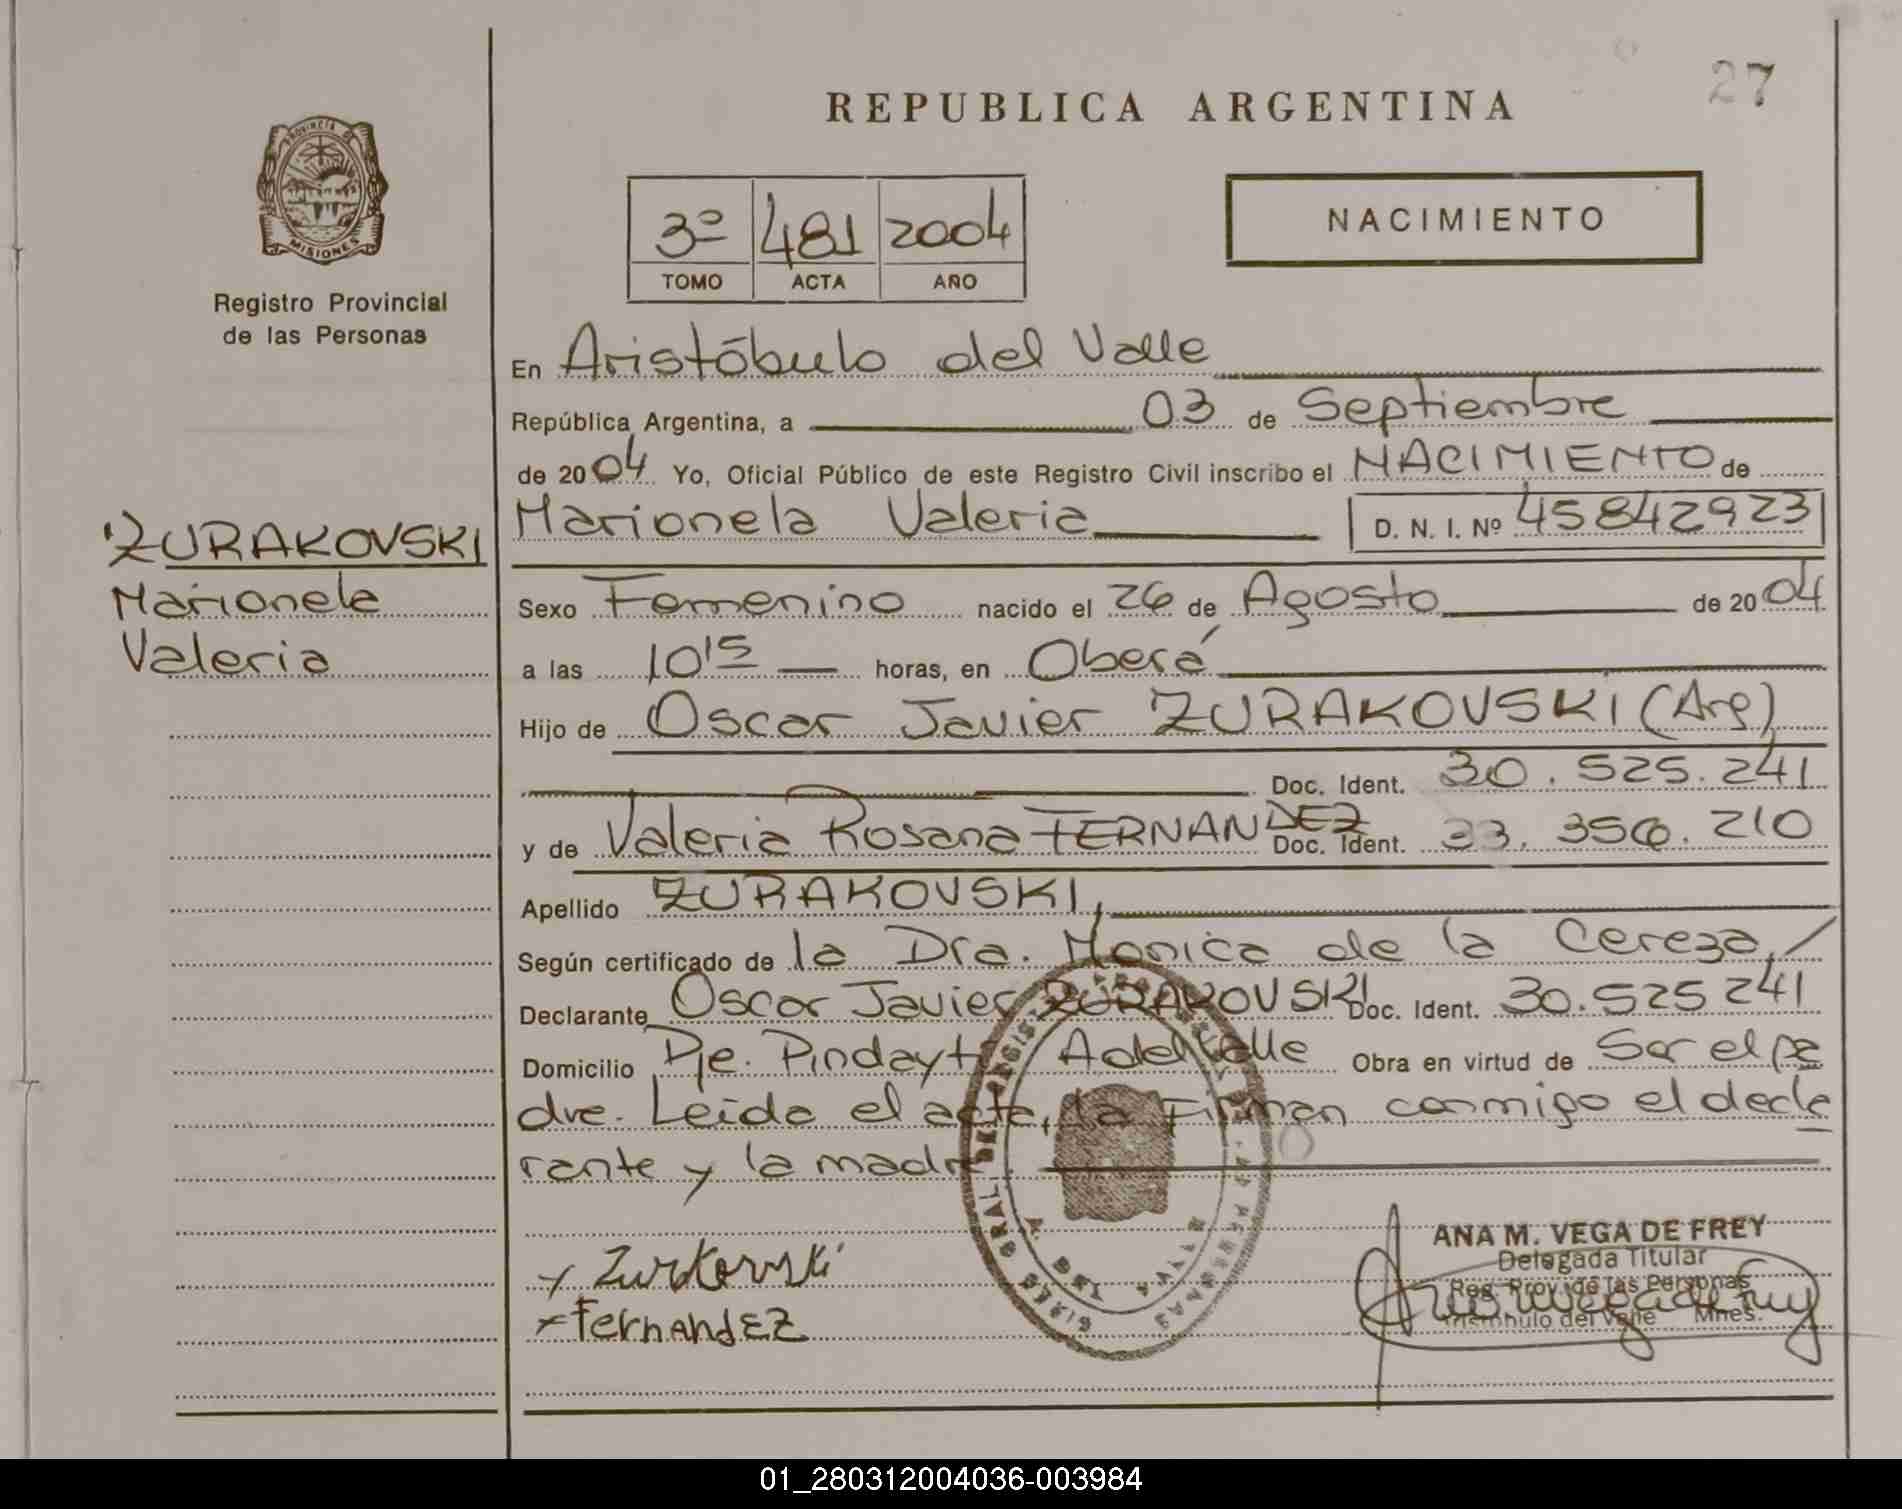 27
REPUBLICA ARGENTINA
PROVINCIA DE
MISIONES
Registro Provincial
de las Personas
3º 481 2004
TOMO ACTA AÑO
NACIMIENTO
En Aristóbulo del Valle
República Argentina, a 03 de Septiembre
de 2004 Yo, Oficial Público de este Registro Civil inscribo el NACIMIENTO de
Marionela Valeria D. N. I. Nº 45842923
ZURAKOVSKI
Marionela
Valeria
Sexo Femenino nacido el 26 de Agosto de 2004
a las 10 15 horas, en Oberá
Hijo de Oscar Javier ZURAKOVSKI (Arg)
Doc. Ident. 30.525.241
y de Valeria Rosana FERNANDEZ Doc. Ident. 33.356.210
Apellido ZURAKOVSKI,
Según certificado de la Dra. Monica de la Cereza,/
Declarante Oscar Javier ZURAKOVSKI Doc. Ident. 30.525241
Domicilio Pje. Pindayti Adel Valle Obra en virtud de Ser el pa
dre. Leida el acta, la Firman conmigo el decla
rante y la madre.
Zurkovski
Fernandez
ANA M. VEGA DE FREY
Delegada Titular
Reg. Prov. de las Personas
Aristóbulo del Valle Mnes.
01_280312004036-003984